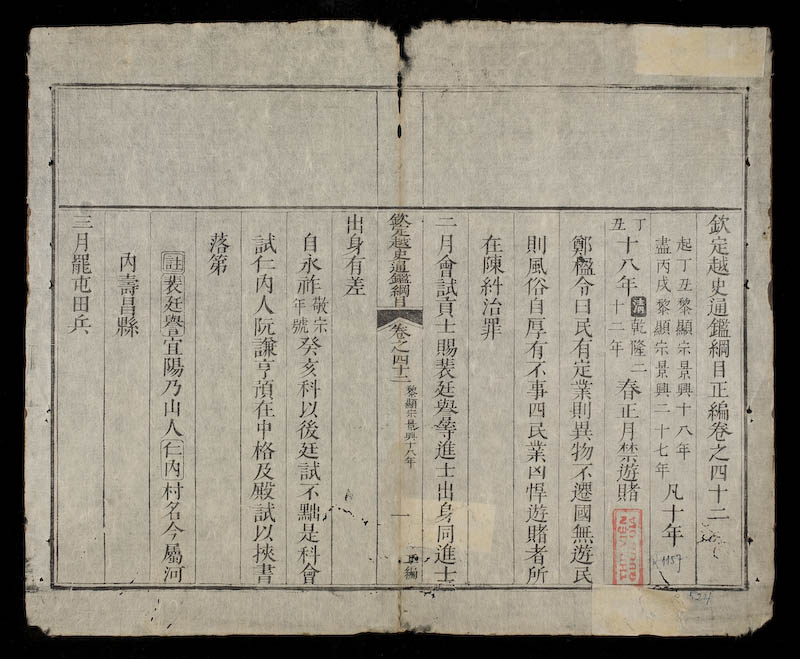 欽定越史通鑑綱目正編卷之四十二
起丁丑黎顯宗景興十八年
盡丙戌黎顯宗景興二十七年
凡十年
丁丑十八年
清乾隆二十二年
春正月禁遊賭
鄭楹令曰民有定業則異物不遷國無遊民
則風俗自厚有不事四民業凶悍遊賭者所
在陳糾治罪
二月會試貢士賜裴廷與等進士出身同進士
欽定越史通鑑綱目
卷之四十二
黎顯宗景興十八年
一
正編
出身有差
自永祚敬宗年號癸亥科以後廷試不黜是科會
試仁內人阮謙亨預在中格及殿試以挾書
落第
註裴廷譽宜陽乃山人仁內村名今屬河
內壽昌縣
三月罷屯田兵